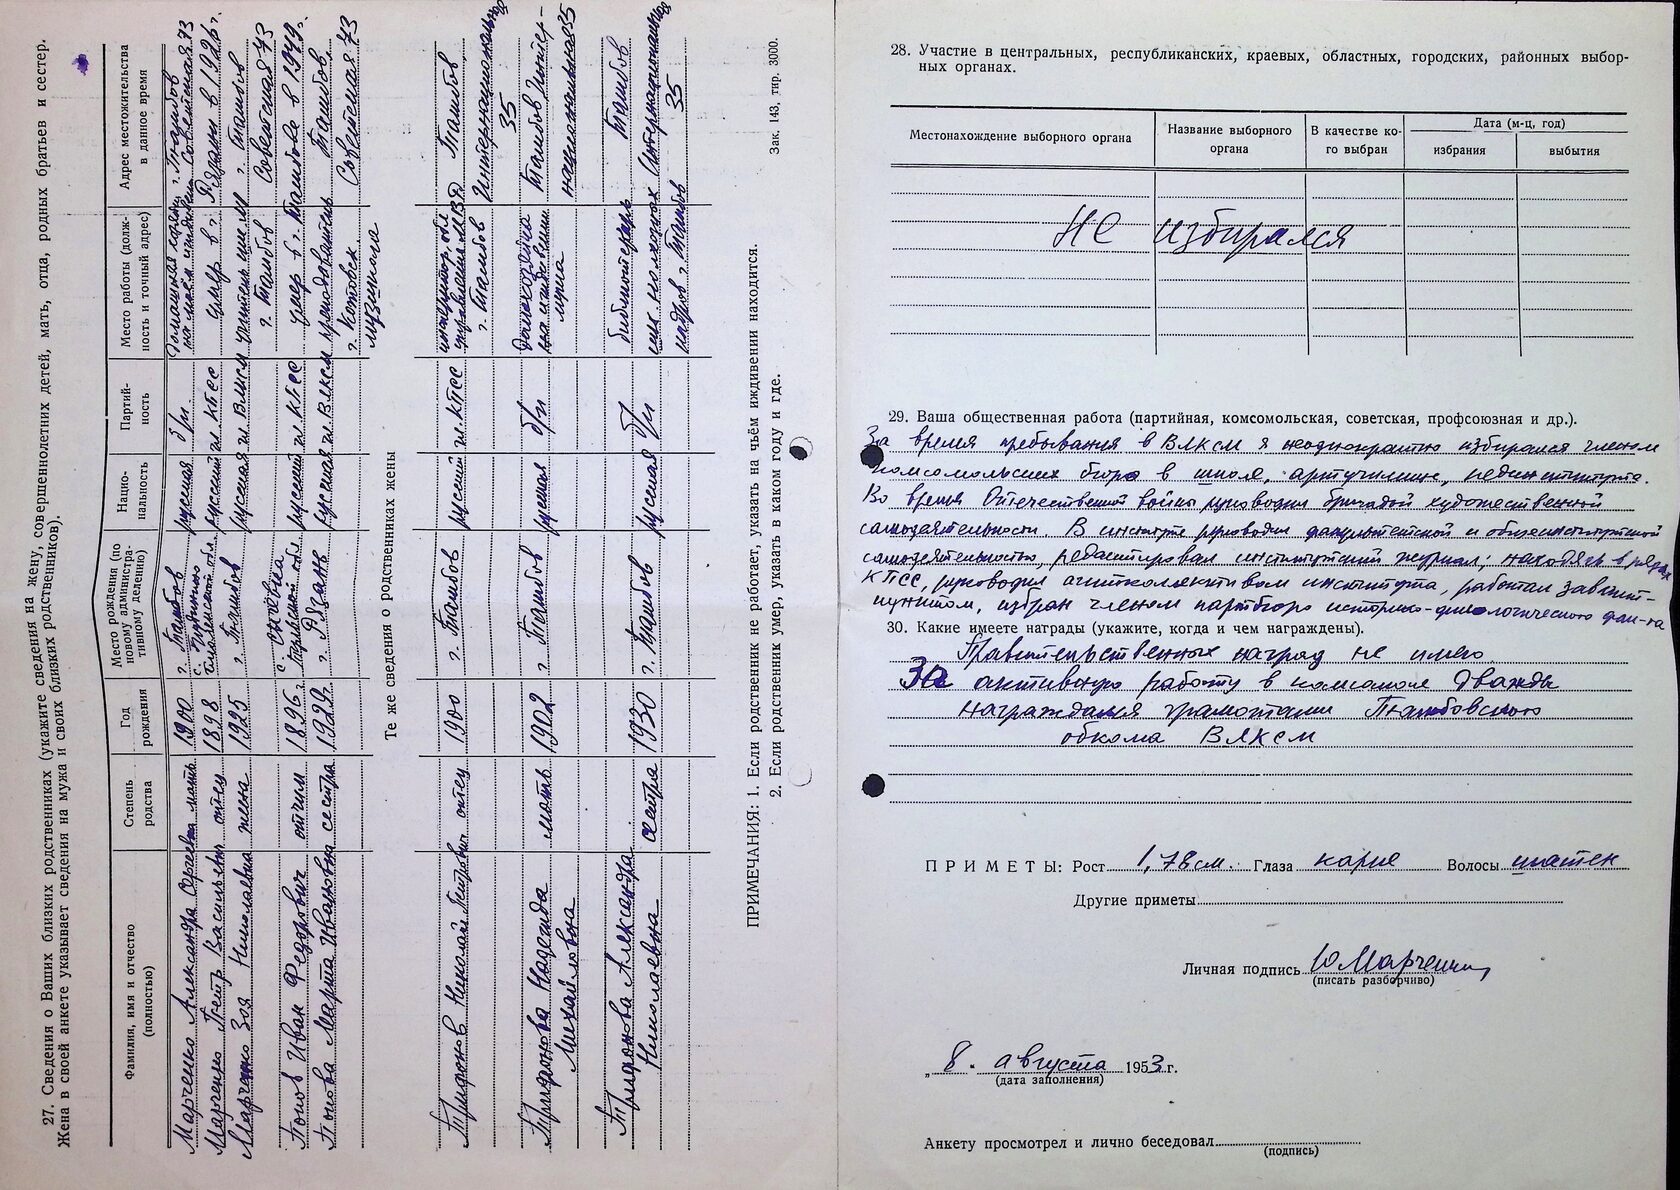 27. Сведения о Ваших близких родственниках (укажите сведения на жену, совершеннолетних детей, мать, отца, родных братьев и сестер.
Жена в своей анкете указывает сведения на мужа и своих близких родственников).
Фамилия, имя и отчество (полностью) Степень родства Год рождения Место рождения (по новому административному делению) Национальность Партийность Место работы (должность и точный адрес) Адрес местожительства в данное время
Марченко Александра Сергеевна мать 1900 г. Тамбов русская б/п домашняя г. Тамбов Советская 73
Марченко Петр Васильевич отец 1898 русский чл КПСС умер в г. в 1926 г.
Марченко Зоя Николаевна жена 1925 г. Тамбов русская чл ВЛКСМ г. Тамбов г. Тамбов Советская 73
Попов Иван Федорович отчим 1896 г. русский чл КПСС умер в г. Тамбове в 1949 г.
Попова Марта Ивановна сестра 1929 г. русская чл ВЛКСМ преподаватель г. Котовск Тамбов Советская 73
Те же сведения о родственниках жены
Николай Петрович отец 1900 г. Тамбов русский чл КПСС г. Тамбов Тамбов, Интернациональная 35
Надежда Михайловна мать 1902 г. Тамбов русская б/п домохозяйка на иждивении мужа Тамбов Интернациональная 35
Александра Николаевна сестра 1930 г. Тамбов русская б/п библиотекарь г. Тамбов Тамбов Интернациональная 35
ПРИМЕЧАНИЯ: 1. Если родственник не работает, указать на чьём иждивении находится.
2. Если родственник умер, указать в каком году и где.
Зак. 143, тир. 3000.
28. Участие в центральных, республиканских, краевых, областных, городских, районных выбор-
ных органах.
Местонахождение выборного органа Название выборного органа В качестве ко-го выбран Дата (м-ц, год) избрания выбытия
НЕ избирался
29. Ваша общественная работа (партийная, комсомольская, советская, профсоюзная и др.).
За время пребывания в ВЛКСМ я неоднократно избирался членом
комсомольских бюро в школе, артучилище, пединституте.
Во время Отечественной войны руководил бригадой художественной
самодеятельности. В институте руководил факультетской и общеинститутской
самодеятельностью, редактировал институтский журнал; находясь в рядах
КПСС, руководил агитколлективом института, работал зав.агит-
пунктом, избран членом партбюро историко-филологического фак-та
30. Какие имеете награды (укажите, когда и чем награждены).
Правительственных наград не имею
За активную работу в комсомоле дважды
награждался грамотами Тамбовского
обкома ВЛКСМ
ПРИМЕТЫ: Рост 1,78 см. Глаза карие Волосы шатен
Другие приметы
Личная подпись Ю Марченко
(писать разборчиво)
„ 8. августа 1953 г.
(дата заполнения)
Анкету просмотрел и лично беседовал
(подпись)